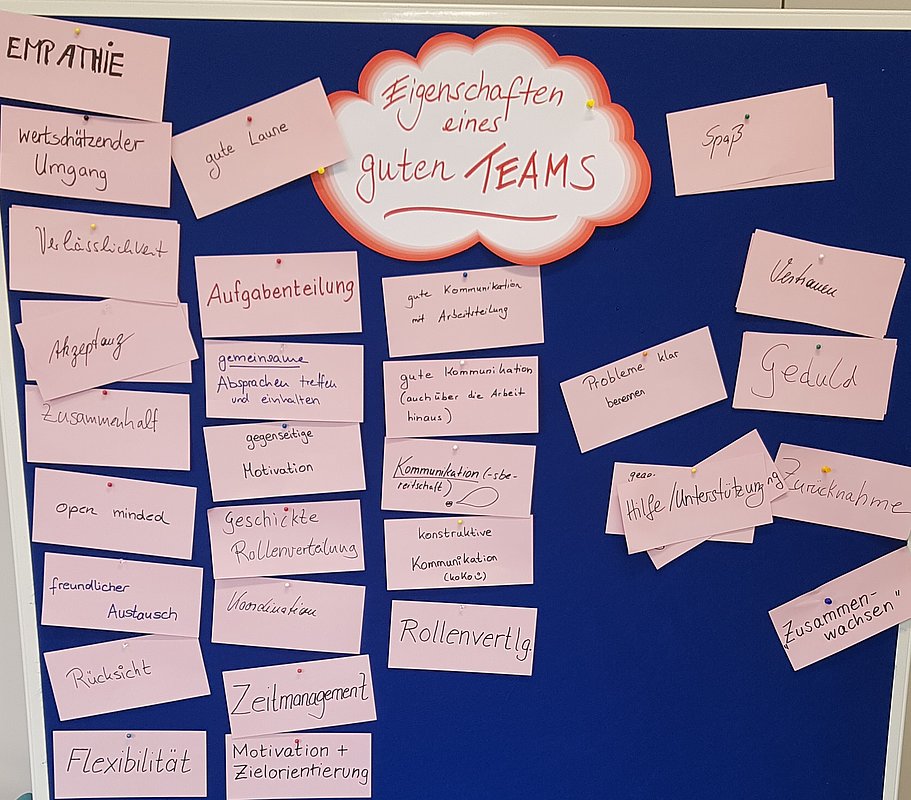 Eigenschaften
eines
guten TEAMS
EMPATHIE
wertschätzender
Umgang
Verlässlichkeit
Akzeptanz
Zusammenhalt
open minded
freundlicher
Austausch
Rücksicht
Flexibilität
gute Laune
Aufgabenteilung
gemeinsame
Absprachen treffen
und einhalten
gegenseitige
Motivation
Geschickte
Rollenverteilung
Koordination
Zeitmanagement
Motivation +
Zielorientierung
gute Kommunikation
mit Arbeitsteilung
gute Kommunikation
(auch über die Arbeit
hinaus)
Kommunikation (-sbe-
reitschaft)
konstruktive
Kommunikation
(koKo☺)
Rollenvertlg.
Spaß
Vertrauen
Probleme klar
benennen
Geduld
Hilfe/Unterstützung
Zurücknahme
„Zusammen-
wachsen"